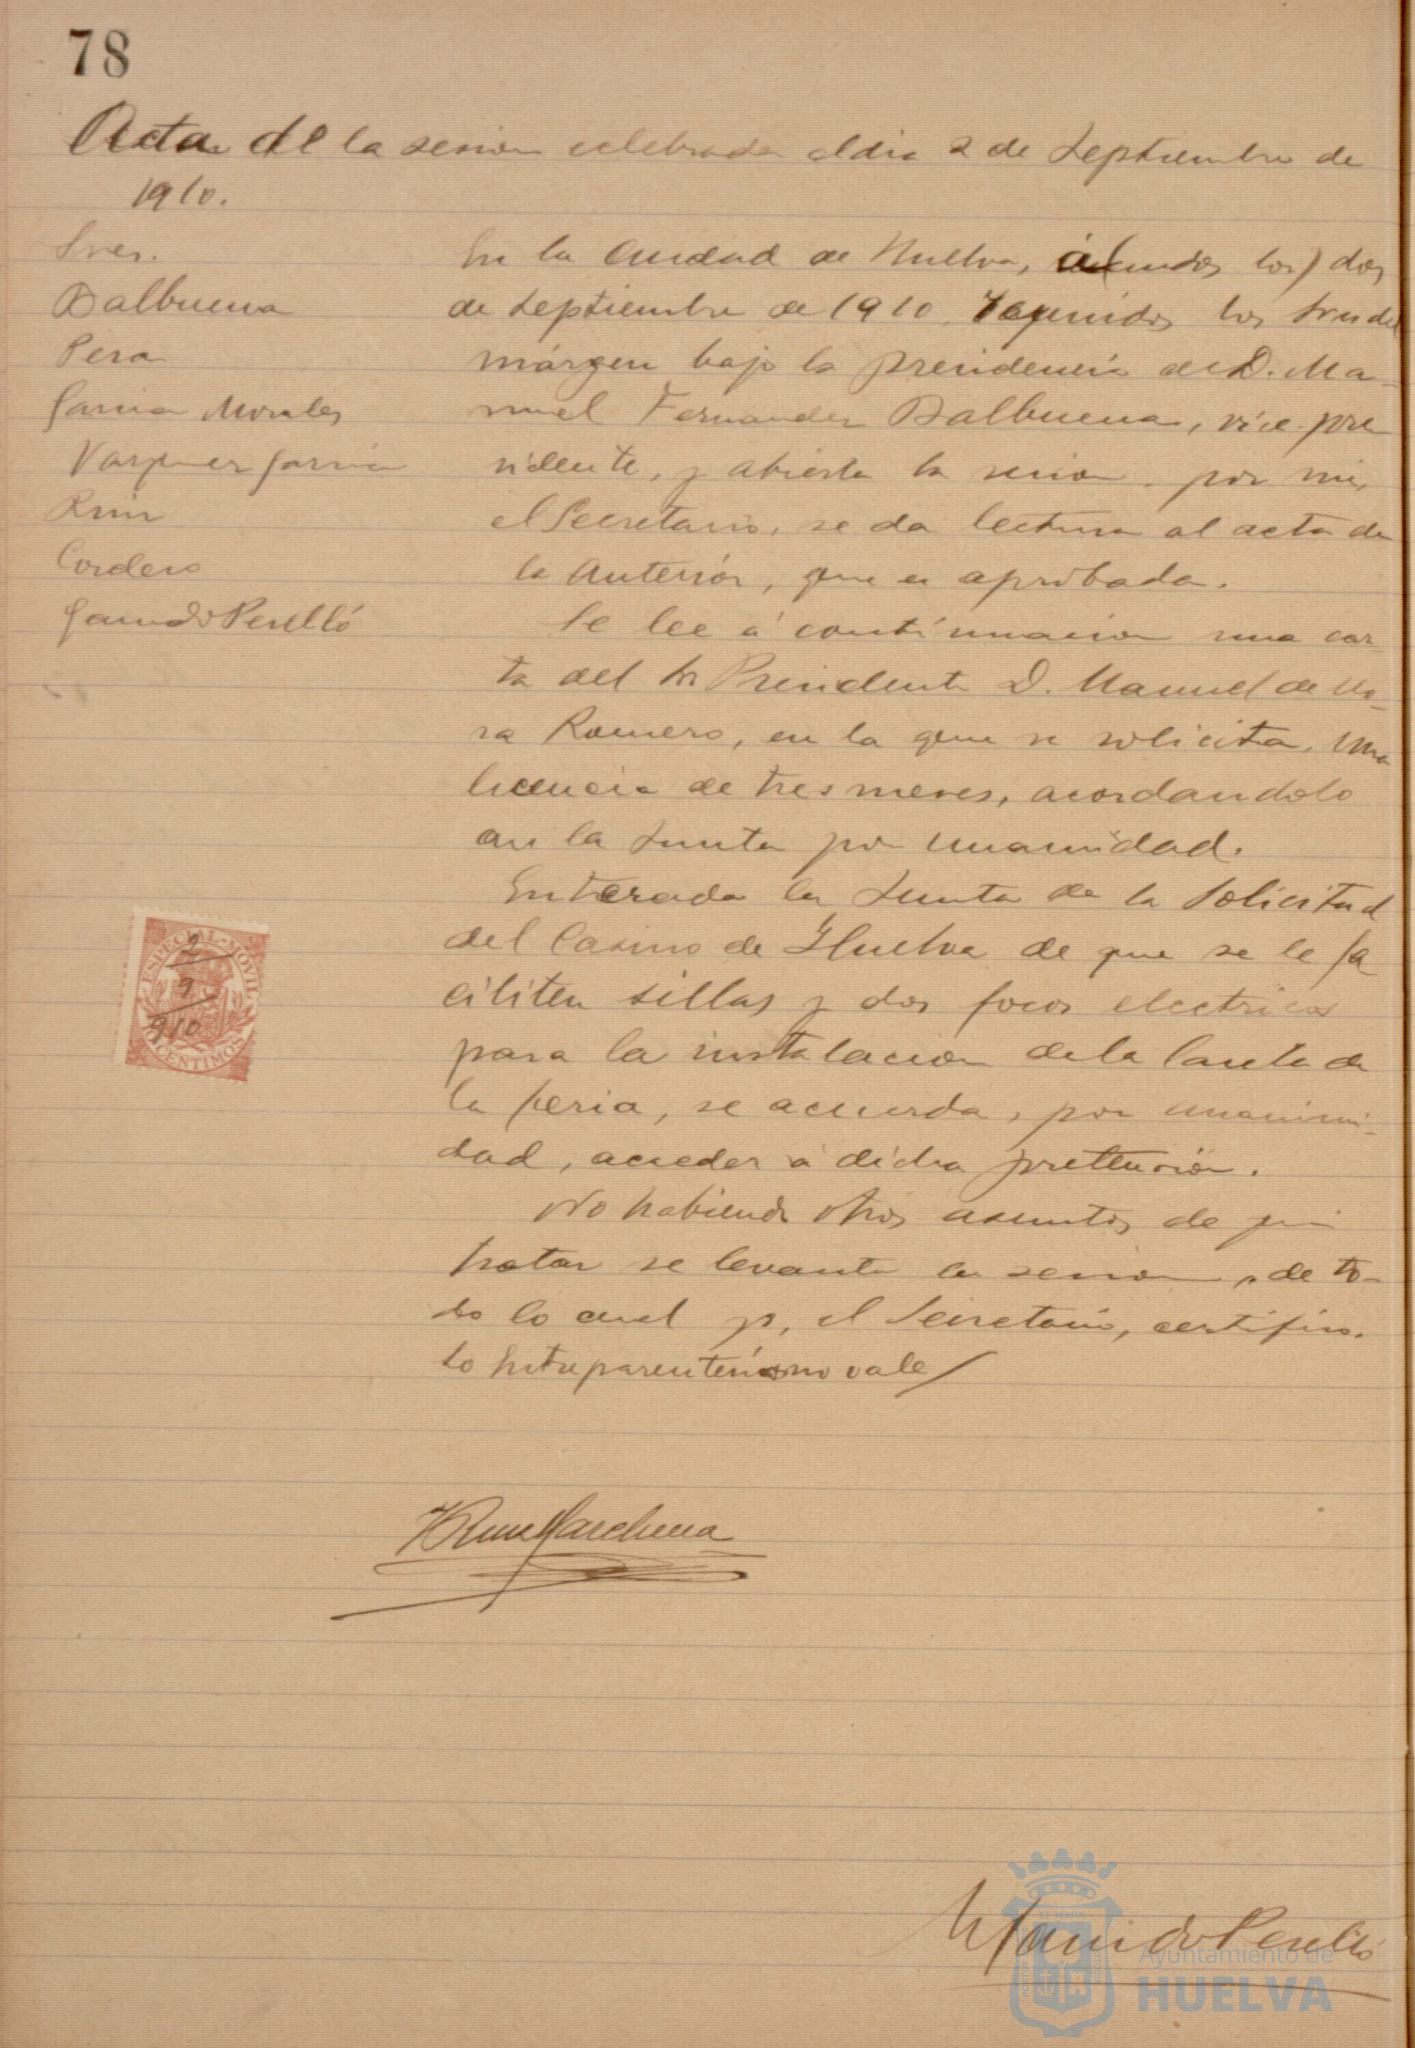 78
Acta de la sesion celebrada el dia 2 de Septiembre de
1910.
Sres.
Balbuena
Pera
Garcia Morales
Vazquez Garcia
Ruiz
Cordero
Garrido Perelló
En la Ciudad de Huelva, á (los) dos
de Septiembre de 1910. reunidos los Sres del
márgen bajo la presidencia de D. Ma-
nuel Fernandez Balbuena, vice-pre
sidente, y abierta la sesion, por mi,
el Secretario, se da lectura al acta de
la anterior, que es aprobada.
Se lee á continuacion una car-
ta del Sr Presidente D. Manuel de Mo-
ra Romero, en la que se solicita, una
licencia de tres meses, acordandolo
asi la Junta por unanimidad.
Enterada la Junta de la Solicitud
del Casino de Huelva de que se le fa
ciliten sillas y dos focos electricos
para la instalacion de la Caseta de
la feria, se acuerda, por unanimi-
dad, acceder á dicha pretension.
No habiendo otros asuntos de que
tratar se levanta la sesion, de to-
do lo cual yo, el Secretario, certifico.
Lo entre parentesis no vale
ESPECIAL MOVIL
2
9
910
10 CENTIMOS
Ruiz Marchena
M Garrido Perelló
Ayuntamiento de
HUELVA